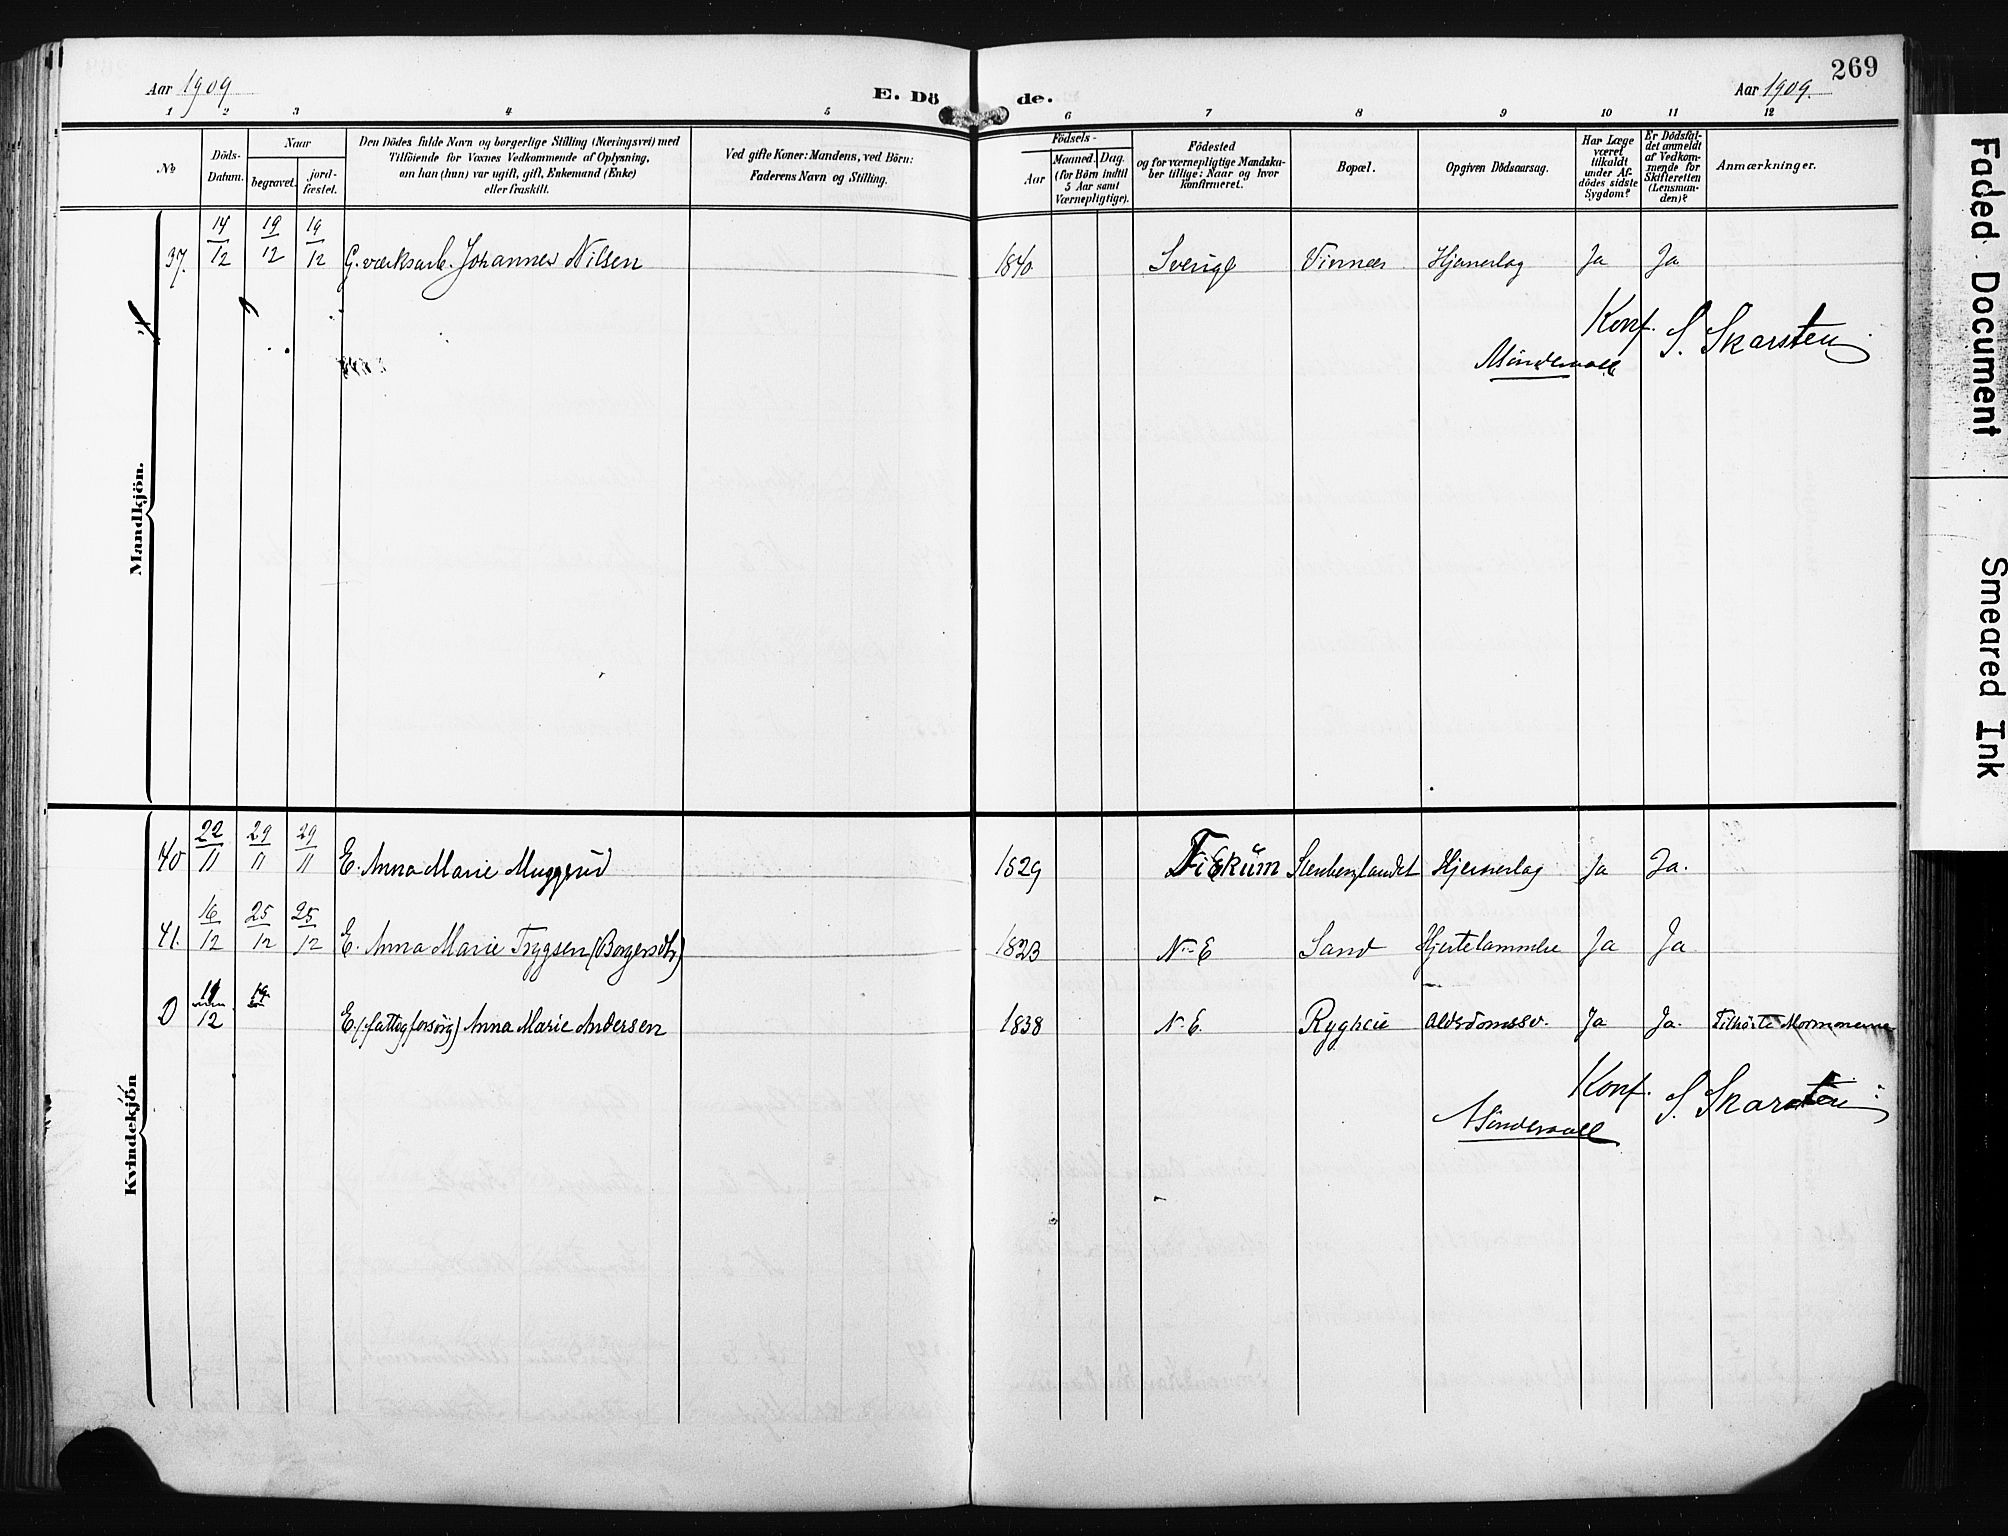 269
Aar 1909
E. Döde.
Aar 1909.
1 2 3 4 5 6 7 8 9 10 11 12
No
Döds-Datum.
Naar
begravet.
jord-fæstet.
Den Dödes fulde Navn og borgerlige Stilling (Næringsvei) med
Tilföiende for Voxnes Vedkommende af Oplysning,
om han (hun) var ugift, gift, Enkemand (Enke)
eller fraskilt.
Ved gifte Koner: Mandens, ved Börn:
Faderens Navn og Stilling.
Födsels-
Aar
Maaned. Dag.
(for Börn indtil
5 Aar samt
Værnepligtige).
Födested
og for værnepligtige Mandska-
ber tillige: Naar og hvor
konfirmeret.
Bopæl.
Opgiven Dödsaarsag.
Har Læge
været
tilkaldt
under Af-
dödes sidste
Sygdom?
Er Dödsfal-
det anmeldt
af Vedkom-
mende for
Skifteretten
(Lensman-
den)?
Anmærkninger.
Mandkjön.
37. 14/12 19/12 19/12 G.værksarb. Johannes Nilsen 1840 Sverige Vinnæs Hjerneslag Ja Ja
Konf. S. Skarsten
Kvindekjön
40 22/11 29/11 29/11 E. Anna Marie Muggerud 1829 Fiskum Stenberglandet Hjerneslag Ja Ja.
41. 16/12 25/12 25/12 E. Anna Marie Trygsen (Borgersdtr) 1823 N.-E Sand Hjertelammelse Ja Ja
D 11/12 19 E. (fattigforsörg) Anna Marie Andersen 1838 N. E. Rygheie Alderdomssv. Ja Ja. Tilhørte Mormonerne
Konf. S. Skarsten
Faded Document
Smeared Ink